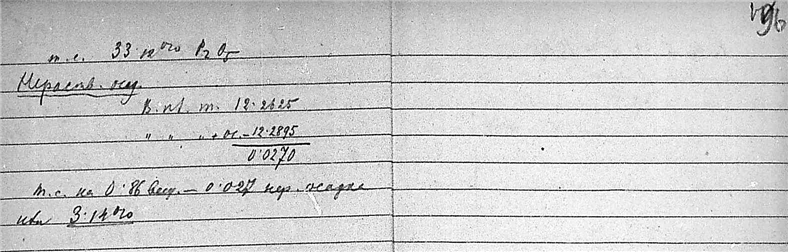 96
т.е. 33·12% P2O5
Нераств. осад.
В. пл. т. 12·2625
" " " + ос. – 12·2895
0·0270
т.е. на 0·86 вещ. – 0·027 нер. осадка
или 3·14%